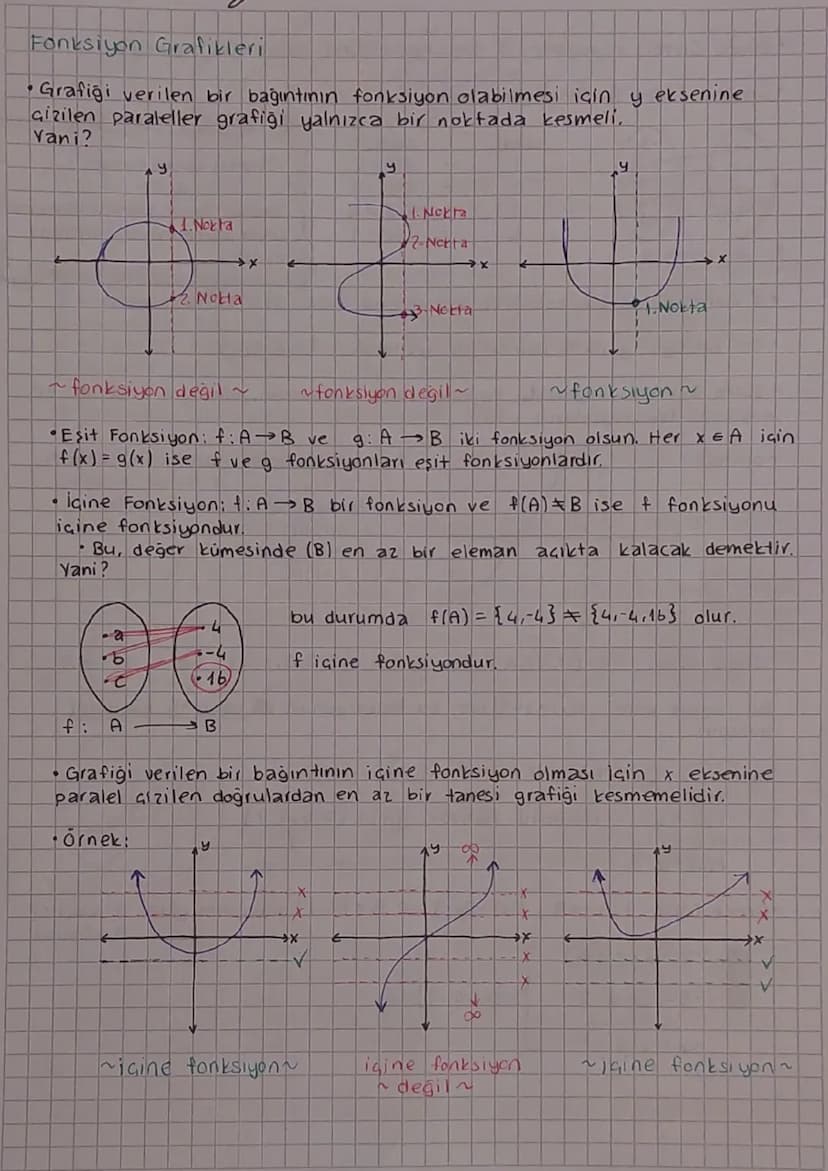 Fonksiyon Grafikleri
• Grafiği verilen bir bağıntının fonksiyon olabilmesi için y eksenine
çizilen paraleller grafiği yalnızca bir noktada kesmeli.
Yani?
y y y
1. Nokta 1. Nokta
2. Nokta
x x x
2. Nokta 3. Nokta 1. Nokta
~ fonksiyon değil ~ ~ fonksiyon değil ~ ~ fonksiyon ~
• Eşit Fonksiyon: f: A → B ve g: A → B iki fonksiyon olsun. Her x ∈ A için
f(x) = g(x) ise f ve g fonksiyonları eşit fonksiyonlardır.
• İçine Fonksiyon: f: A → B bir fonksiyon ve f(A) ≠ B ise f fonksiyonu
içine fonksiyondur.
• Bu, değer kümesinde (B) en az bir eleman açıkta kalacak demektir.
Yani?
• a • 4
• b • -4
• c • 16
f: A → B
bu durumda f(A) = {4,-4} ≠ {4,-4,16} olur.
f içine fonksiyondur.
• Grafiği verilen bir bağıntının içine fonksiyon olması için x eksenine
paralel çizilen doğrulardan en az bir tanesi grafiği kesmemelidir.
• Örnek:
y y ∞ y
x x x
x x x
x x x
✓ x ✓
x ✓
∞
~ içine fonksiyon ~ içine fonksiyon ~ içine fonksiyon ~
~ değil ~